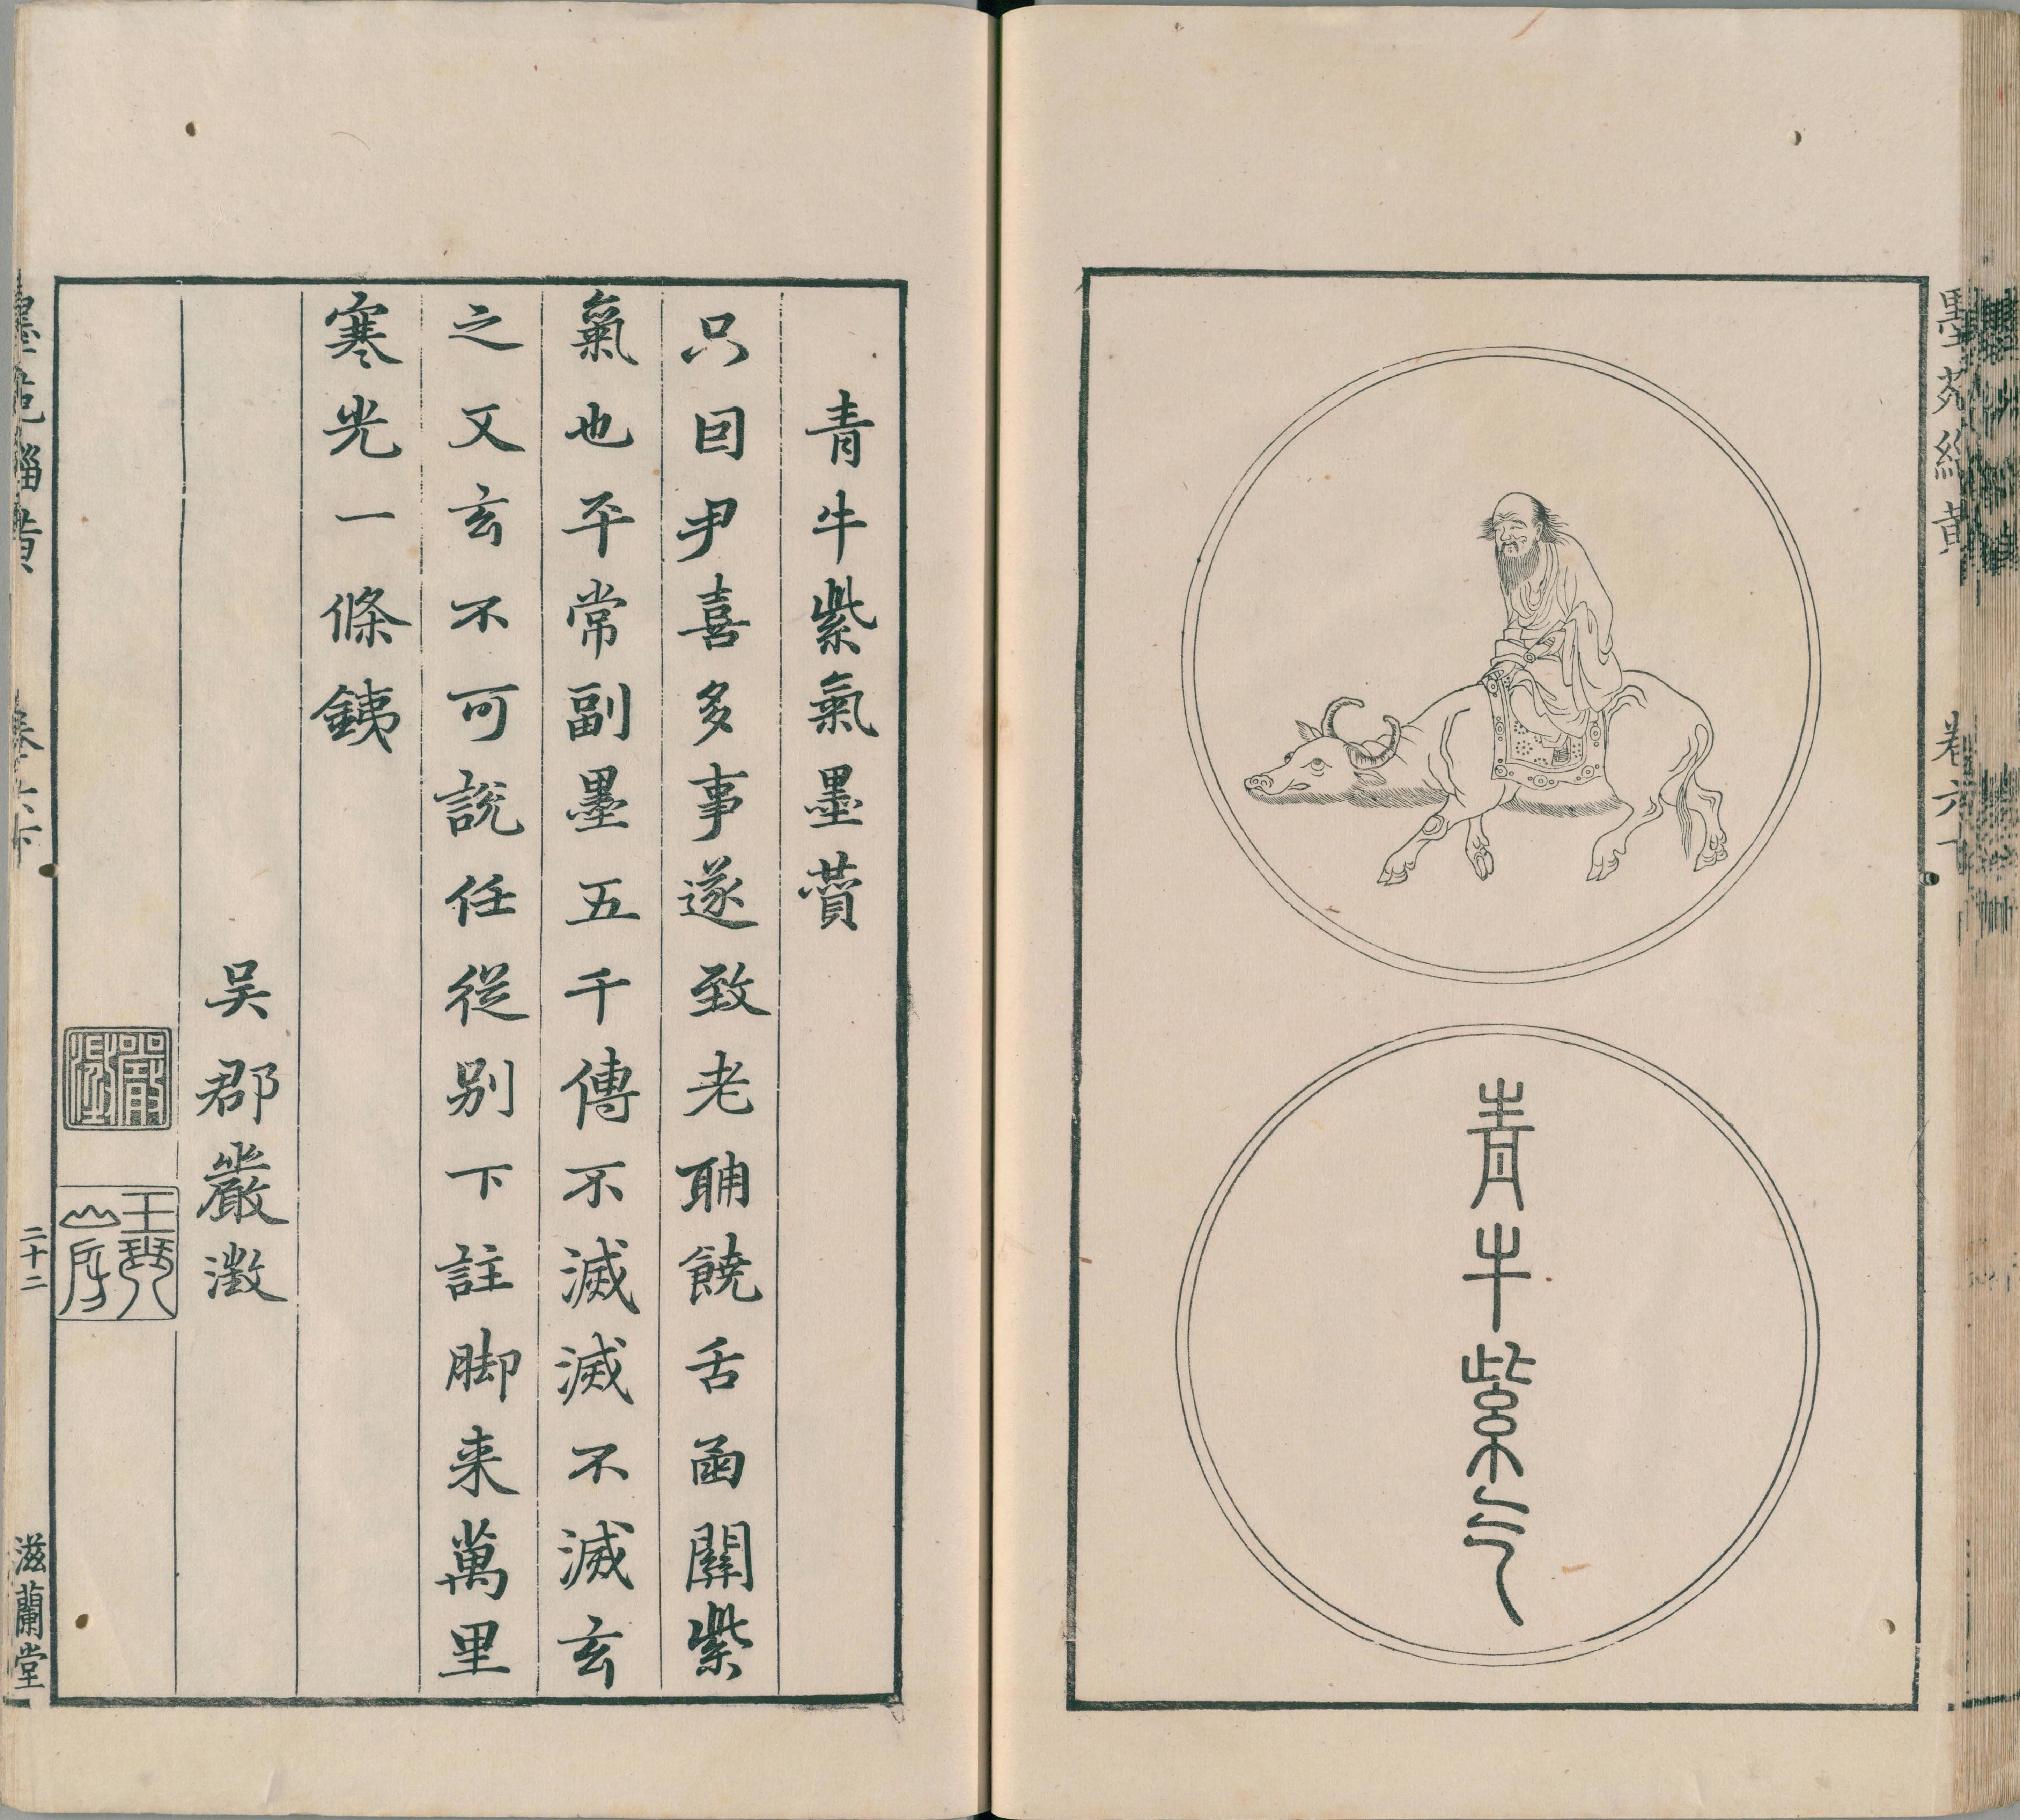 墨苑緇黄
卷六下
青牛紫气
青牛紫氣墨蕡
只囙尹喜多事遂致老聃饒舌函關紫
氣也平常副墨五千傳不滅滅不滅玄
之又玄不可說任從別下註脚来萬里
寒光一條銕
吳郡嚴澂
嚴澂
玉琴山房
墨苑緇黄
卷六下
二十二
滋蘭堂